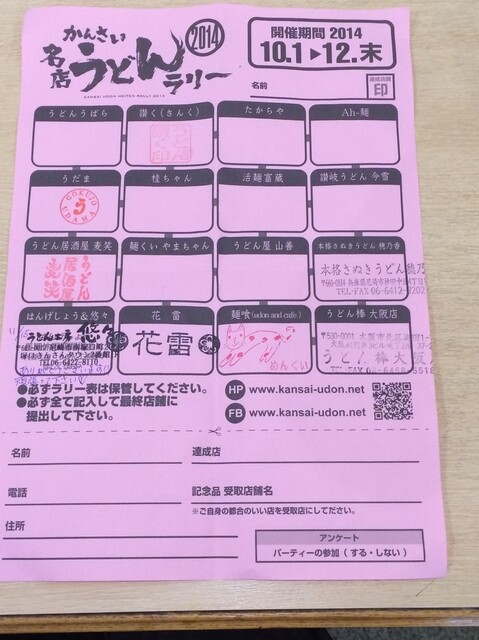 かんさい
名店うどんラリー
2014
KANSAI UDON MEITEN RALLY 2014
開催期間 2014
10.1▶12.末
名前
達成店舗
印
うどんうばら
讃く(さんく)
たからや
Ah-麺
うだま
桂ちゃん
活麺富蔵
讃岐うどん 今雪
GOKUJO
う
UDAMA
うどん居酒屋 麦笑
麺くい やまちゃん
うどん屋 山善
本格さぬきうどん 穂乃香
うどん
居酒屋
麦笑
本格さぬきうどん穂乃
TEL・FAX 06-6412-
はんげしょう&悠々
花 雷
麺喰(udon and cafe)
うどん棒 大阪店
うどん工房 悠
TEL06-6427-8110
花雷
めんくい
〒530-0001
うどん棒大阪
●必ずラリー表は保管してください。
●必ず全て記入して最終店舗に
提出して下さい。
HP www.kansai-udon.net
FB www.kansai-udon.net
名前
達成店
電話
記念品 受取店舗名
※ご自身の都合のいい店を受取店にしてください。
住所
アンケート
パーティーの参加 ( する・しない )